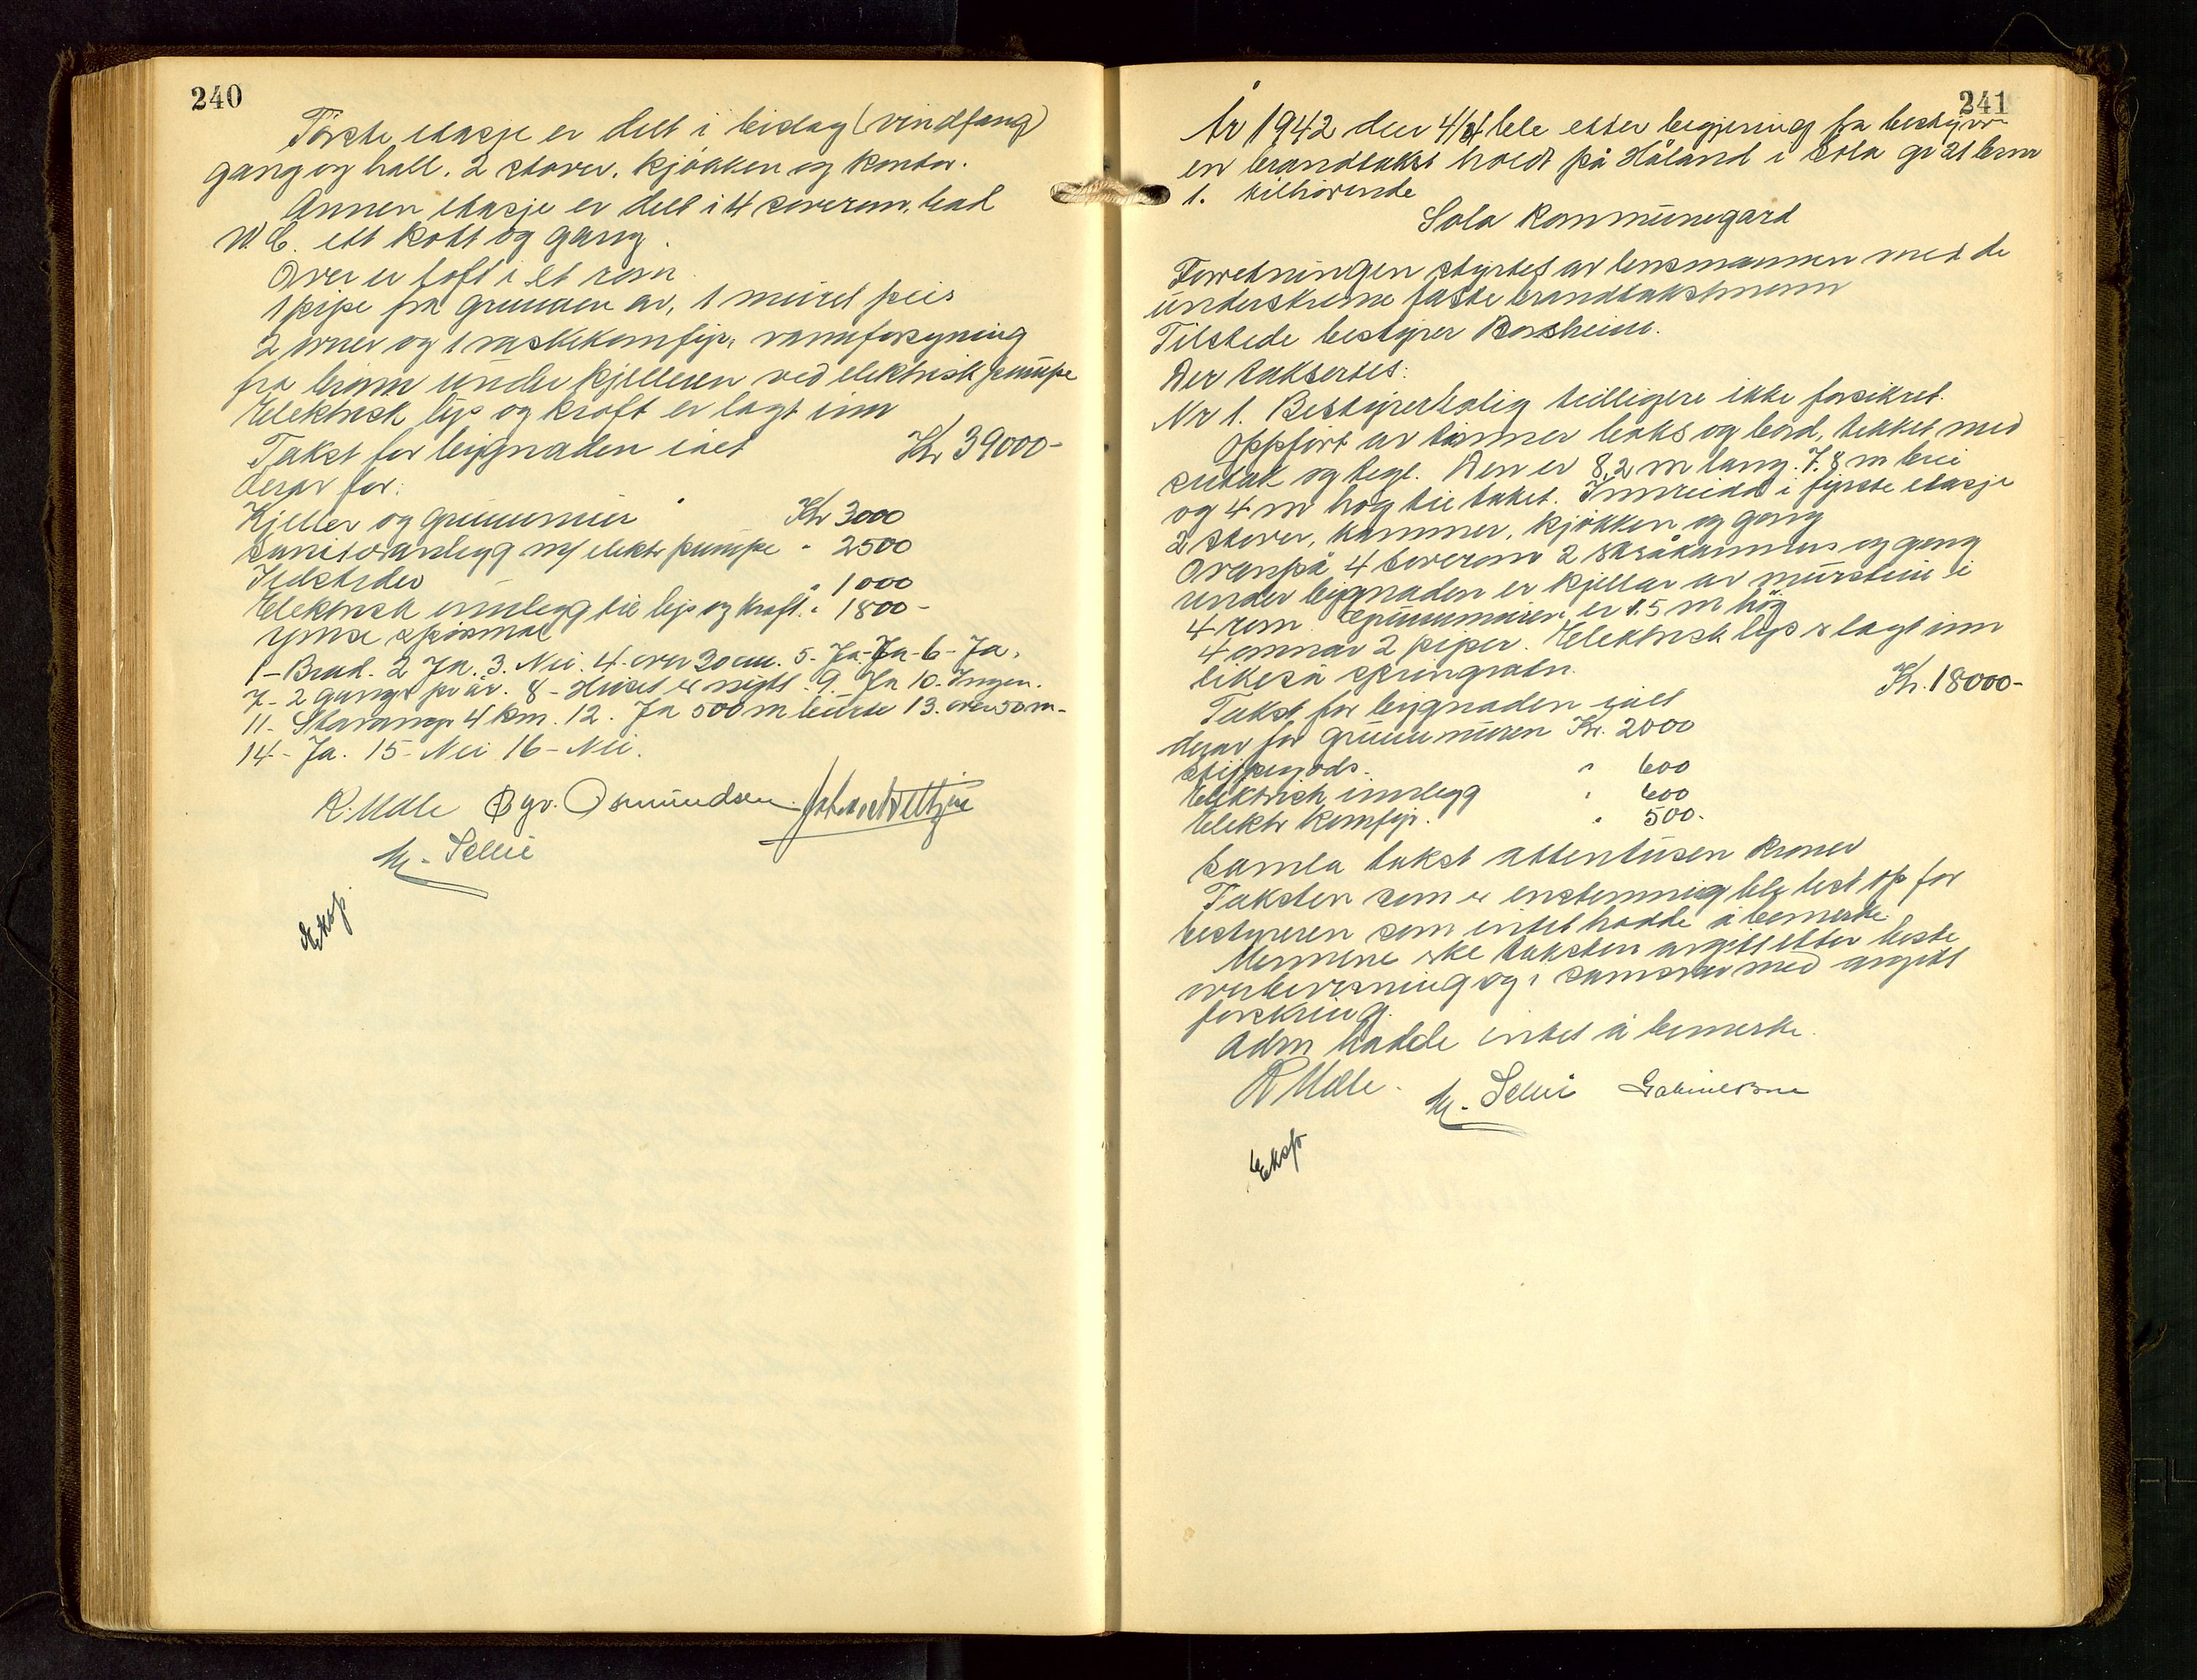 240
Første etasje er delt i bislag (vindfang)
gang og hall. 2 stover. kjøkken og kontor.
Annen etasje er delt i 4 soverom, bad
W.C. ett kott og gang.
Over er loft i et rom.
1 pipe fra grunnen av, 1 muret peis
2 ovner og 1 vaskekomfyr. vannforsyning
fra brønn under kjelleren ved elektrisk pumpe
Elektrisk lys og kraft er lagt inn
Takst for bygnaden i alt Kr 39000-
derav for:
Kjeller og grunnmur Kr 3000
Sanitæranlegg m/ elektr pumpe " 2500
Ildsteder " 1000
Elektrisk innlegg til lys og kraft. " 1800-
Ymse spørsmål
1- Brad. 2 Ja. 3. Nei. 4. over 30 cm. 5. Ja. Ja-6- Ja.
7- 2 ganger pr år. 8- Huset er nytt. 9. Ja 10. Ingen.
11- Stavanger 4 km. 12. Ja 500 m 13. over 50 m-
14- Ja. 15- Nei 16- Nei.
R. Melle Osmundsen
M. Selle
Eksp.
241
År 1942 den 4/4 ble etter begjering fra bestyrer
en brandtakst holdt på Håland i Sola gr 21 brnr
1. tilhørende
Sola Kommunegard
Forretningen styrtes av lensmannen med de
underskrevne faste brandtakstmenn
Tilstede bestyrer Borsheim.
Der taksertes:
Nr 1. Bestyrerbolig tidligere ikke forsikret.
Oppført av tømmer boks og bord, tekket med
sutak og tegl. Den er 8,2 m lang. 7,8 m brei
og 4 m høg til taket. Innreidd i fyrste etasje
2 stover, kammer, kjøkken og gang
Ovanpå 4 soverom 2 skråkammers og gang
under bygnaden er kjellar av murstein i
4 rom. Grunnmuren er 1.5 m høg
4 omnar 2 piper. Elektrisk lys er lagt inn
likeså springvatn.
Takst for bygnaden i alt Kr. 18000-
derav for grunnmuren Kr. 2000
støypegods. " 600
Elektrisk innlegg " 600
Elektr komfyr. " 500.
Samla takst attentusen kroner
Taksten som er enstemmig ble lest op for
bestyreren som intet hadde å bemerke
Mennene ske taksten avgitt etter beste
overbevisning og i samsvar med avgitt
forsikring.
Adm hadde intet å bemerke.
R Melle. M. Selle Gabriel
Eksp